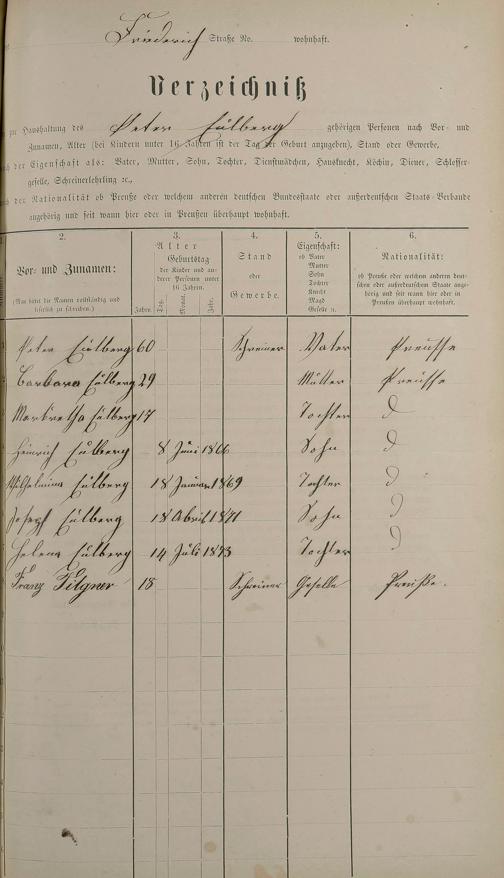 Friederich Straße No. wohnhaft.
Verzeichniß
zur Haushaltung des Peter Eulberg gehörigen Personen nach Vor- und
Zunamen, Alter (bei Kindern unter 16 Jahren ist der Tag der Geburt anzugeben), Stand oder Gewerbe,
nach der Eigenschaft als: Vater, Mutter, Sohn, Tochter, Dienstmädchen, Hausknecht, Köchin, Diener, Schlosser-
geselle, Schreinerlehrling ꝛc.,
nach der Nationalität ob Preuße oder welchem anderen deutschen Bundesstaate oder außerdeutschen Staats-Verbande
angehörig und seit wann hier oder in Preußen überhaupt wohnhaft.
2. 3. 4. 5. 6.
Vor- und Zunamen:
(Man bittet die Namen vollständig und
leserlich zu schreiben.)
Alter
Geburtstag
der Kinder und an-
derer Personen unter
16 Jahren.
Jahre. Tag. Monat. Jahr.
Stand
oder
Gewerbe.
Eigenschaft:
ob Vater
Mutter
Sohn
Tochter
Knecht
Magd
Geselle ꝛc.
Nationalität:
ob Preuße oder welchem anderen deut-
schen oder außerdeutschen Staate ange-
hörig und seit wann hier oder in
Preußen überhaupt wohnhaft.
Peter Eulberg 60 Schreiner Vater Preusse
Barbara Eulberg 29 Mutter Preusse
Margretha Eulberg 17 Tochter d
Heinrich Eulberg 8 Juni 1866 Sohn d
Wilhelmina Eulberg 18 Januar 1869 Tochter d
Josepf Eulberg 18 Abril 1871 Sohn d
Helena Eulberg 14 Juli 1873 Tochter d
Franz Filgner 18 Schreiner Geselle Preuße.